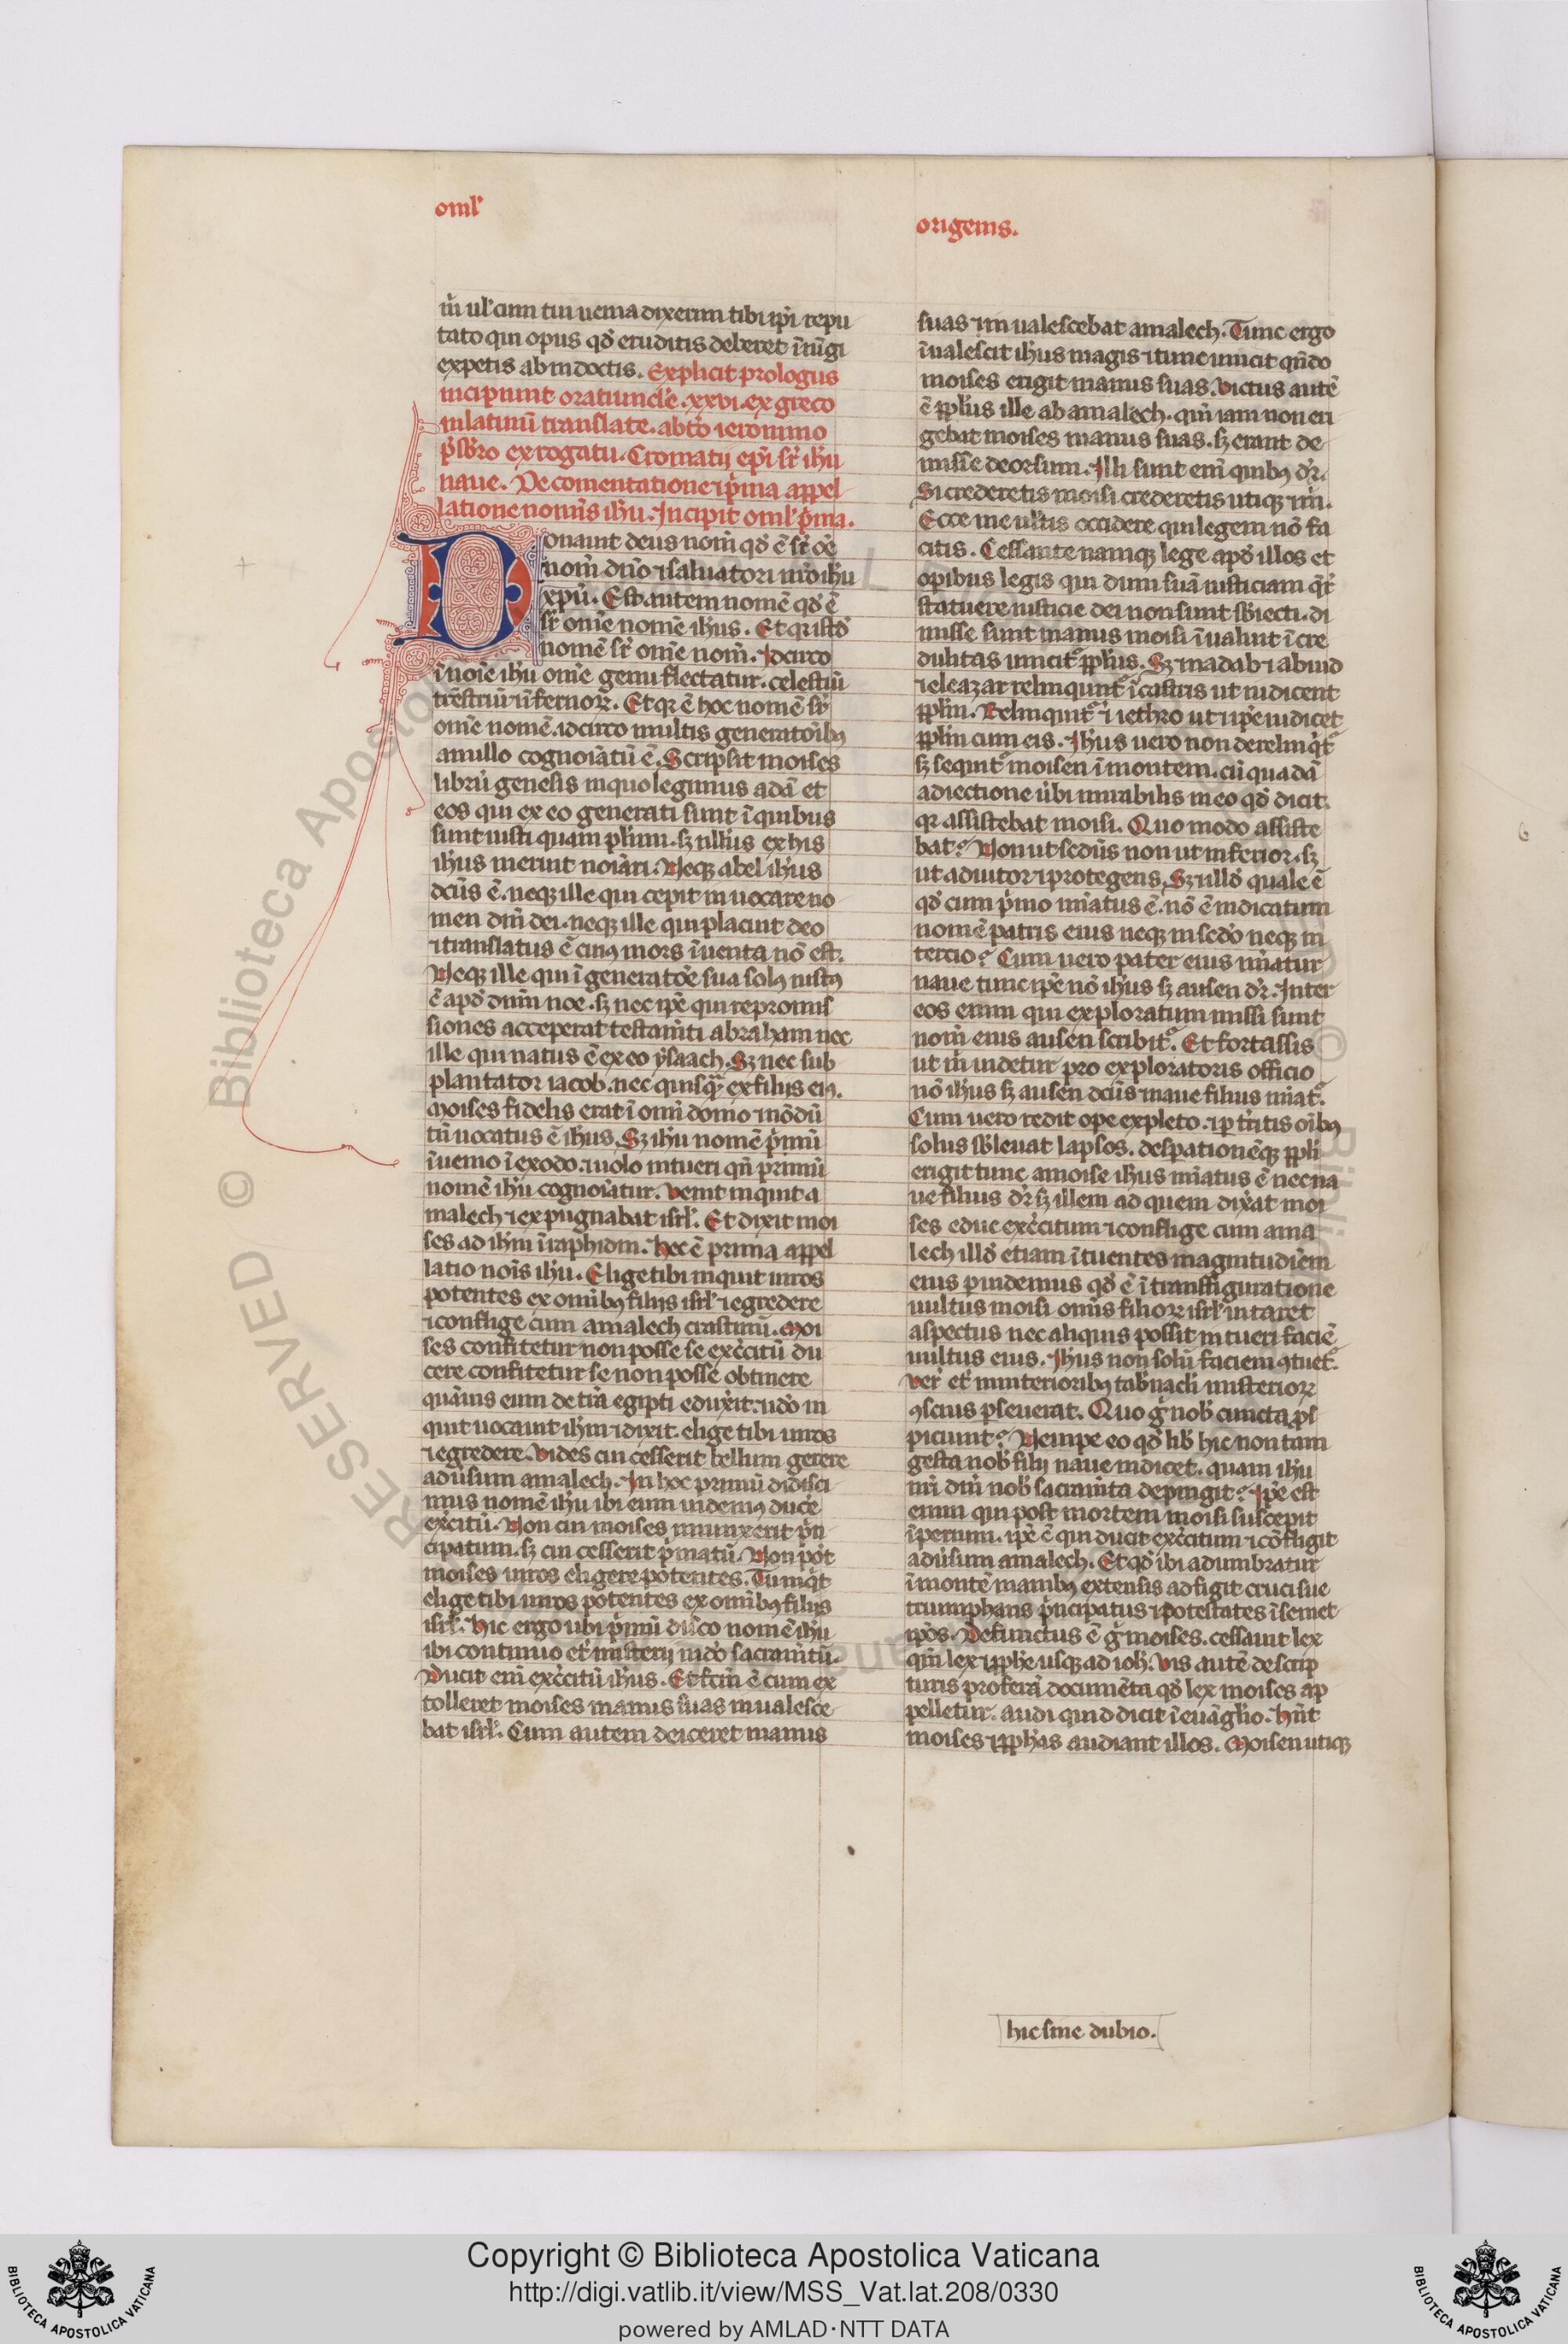 oml'
origenis.
m̄ ul' cum tui uenia dixerim tibi ip̄i repu
tato qui opus qđ eruditis deberet ī iūgi
expetis ab indoctis. Explicit prologus
incipiunt oratiuncle .xxvi. ex greco
in latinū translate. a bt̄o ieronimo
p̄sb̄ro ex rogatu. Cromatij ep̄i sr̄ ih̄u
naue. De comentatione ⁊ p̄ma appel
latione nomīs ih̄u. Incipit oml' p̄ma.
Donauit deus nom̄ qđ ē sr̄ oē
nom̄ dn̄o ⁊ saluatori nr̄o ih̄u
xp̄u. Est autem nomē qđ ē
sr̄ omē nomē ih̄us. Et qr istđ
nomē sr̄ omē nom̄. Idcirco
ī noīe ih̄u omē genu flectatur. celestiū
trēstriū ⁊ īfernoꝝ. Et qr ē hoc nomē sr̄
omē nomē. idcirco multis generatōibꝰ
a nullo cognoīatū ē. Scripsit moises
librū genesis in quo legimus adā et
eos qui ex eo generati sunt ī quibus
sunt iusti quam pl̄imi. sꝫ nll̄us ex his
ih̄us meruit noīari. Neqꝫ abel ih̄us
dc̄us ē. neqꝫ ille qui cepit inuocare no
men dn̄i dei. neqꝫ ille qui placuit deo
⁊ translatus ē cuiꝰ mors īuenta nō est.
Neqꝫ ille qui ī generatōe sua solꝰ iustꝰ
ē apđ dn̄m noe. sꝫ nec ip̄e qui repromis
siones acceperat testam̄ti abraham nec
ille qui natus ē ex eo ysaach. Sꝫ nec sub
plantator iacob. nec quisq̄ꝫ ex filijs eiꝰ.
Moises fidelis erat ī om̄i domo ⁊ nōdū
tn̄ uocatus ē ih̄us. Sꝫ ih̄u nomē p̄mū
īuenio ī exodo. ⁊ uolo intueri qn̄ primū
nomē ih̄u cognoīatur. Venit inquit a
malech ⁊ expugnabat isrl'. Et dixit moi
ses ad ih̄m ī raphidin. hec ē prima appel
latio noīs ih̄u. Elige tibi inquit uiros
potentes ex omībꝰ filijs isrl' ⁊ egredere
⁊ conflige cum amalech crastinū. Moi
ses confitetur non posse se exēcitū du
cere confitetur se non posse obtinere
quāuis eum de tr̄a egipti eduxīt. ⁊ iđo in
quit uocauit ih̄m ⁊ dixit. elige tibi uiros
⁊ egredere. Vides cui cesserit bellum gerere
adūsum amalech. In hoc primū didisci
mus nomē ih̄u ibi eum uidemꝰ ducē
exēcitū. Non cui moises iniunxerit p̄n
cipatum. sꝫ cui cesserit p̄matū. Non pōt
moises uiros eligere potentes. Tu inq̄t
elige tibi uiros potentes ex omībꝰ filijs
isrl'. Hic ergo ubi p̄mū disco nomē ih̄u
ibi continuo et̄ misterij uiđo sacram̄tū.
Ducit em̄ exēcitū ih̄us. Et fc̄m ē cum ex
tolleret moises manus suas inualesce
bat isrl'. Cum autem deiceret manus
suas ⁊ in ualescebat amalech. Tunc ergo
īualescit ih̄us magis ⁊ tunc uincit qn̄do
moises erigit manus suas. Victus autē
ē ppl̄us ille ab amalech. qm̄ iam non eri
gebat moises manus suas. sꝫ erant de
misse deorsum. Illi sunt em̄ quibꝰ dr̄.
Si crederetis moisi crederetis utiqꝫ ⁊ m̄.
Ecce me ul̄tis occidere qui legem nō fa
citis. Cessante namqꝫ lege apđ illos et
opibus legis qui dum suā iusticiam q̄r̄
statuere iusticie dei non sunt sb̄iecti. di
misse sunt manus moisi ī ualuit īcre
dulitas uincit᷑ ppl̄us. Sꝫ ⁊ nadab ⁊ abiud
⁊ eleazar relinqunt᷑ ī castris ut iudicent
ppl̄m. Relinquit᷑ ⁊ iethro ut ⁊ ip̄e iudicet
ppl̄m cum eis. Ih̄us uero non derelinq̄t᷑
sꝫ seqint᷑ moisen ī montem. cū quadā
adiectione ūbi mirabilis in eo qđ dicit.
qr assistebat moisi. Quo modo assiste
bat? Non ut sed̄us non ut inferior. sꝫ
ut adiutor ⁊ protegens. Sꝫ illđ quale ē
qđ cum p̄mo n̄iatus ē. nō ē indicatum
nomē patris eius neqꝫ in sed̄o neqꝫ in
tercio? Cum uero pater eius n̄iatur
naue tunc ip̄e nō ih̄us sꝫ ausen dr̄. Inter
eos enim qui exploratum missi sunt
nom̄ eius ausen scribit᷑. Et fortassis
ut m̄ uidetur pro exploratoris officio
nō ih̄us sꝫ ausen dc̄us ⁊ naue filius n̄iat᷑.
Cum uero redit ope expleto. ⁊ p̄tr̄itis oībꝰ
solus sb̄leuat lapsos. despationēqꝫ ppl̄i
erigit tunc a moise ih̄us n̄iatus ē nec na
ue filius dr̄ sꝫ illem ad quem dixāt moi
ses educ exēcitum ⁊ conflige cum ama
lech illđ etiam ītuentes magnitudīem
eius puidemus qđ ē ī transfiguratione
uultus moisi omīs filioꝝ isrl' uitaret
aspectus nec aliquis possit intueri faciē
uultus eius. Ih̄us non solū faciem ꝯtuet᷑.
Veꝝ et̄ ninterioribꝰ tab̄nacl̄i misterioꝝ
ꝯscius pseuerat. Quo g̊ nob̄ cuncta psl
piciunt? Nempe eo qđ lib̄ hic non tam
gesta nob̄ filij naue indicet. quam ih̄u
nr̄i dn̄i nob̄ sacram̄ta depingit? Ip̄e est
enim qui post mortem moisi suscepit
īperium. ip̄e ē qui ducit exēcitum ⁊ cōfligit
adūsum amalech. Et qđ ibi adumbratur
ī montē manibꝰ extensis adfigit cruci sue
triumphans p̄ncipatus ⁊ potestates ī semet
ip̄os. Defunctus ē g̊ moises. cessauit lex
qm̄ lex ⁊ pph̄e usqꝫ ad ioh̄. Vis autē de scrip
turis proferā documēta qđ lex moises ap
pelletur. audi quid dicit ī euāgl̄io. Hn̄t
moises ⁊ pph̄as audiant illos. Moisen utiqꝫ
hic sine dubio.
Copyright © Biblioteca Apostolica Vaticana
http://digi.vatlib.it/view/MSS_Vat.lat.208/0330
powered by AMLAD·NTT DATA
BIBLIOTECA APOSTOLICA VATICANA
BIBLIOTECA APOSTOLICA VATICANA